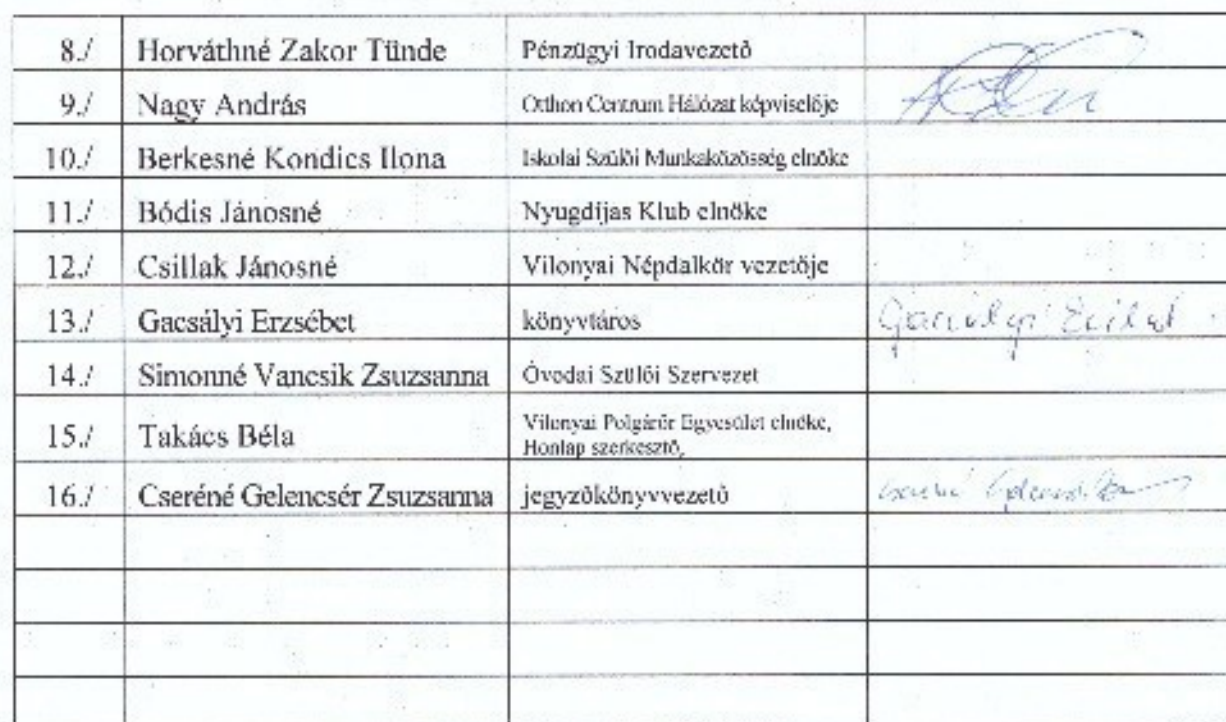 8./ Horváthné Zakor Tünde Pénzügyi Irodavezetõ
9./ Nagy András Otthon Centrum Hálózat képviselõje
10./ Berkesné Kondics Ilona Iskolai Szülõi Munkaközösség elnöke
11./ Bódis Jánosné Nyugdíjas Klub elnöke
12./ Csillak Jánosné Vilonyai Népdalkör vezetõje
13./ Gacsályi Erzsébet könyvtáros Gacsályi
14./ Simonné Vancsik Zsuzsanna Óvodai Szülõi Szervezet
15./ Takács Béla Vilonyai Polgárõr Egyesület elnöke,
Honlap szerkesztõ,
16./ Cseréné Gelencsér Zsuzsanna jegyzõkönyvvezetõ